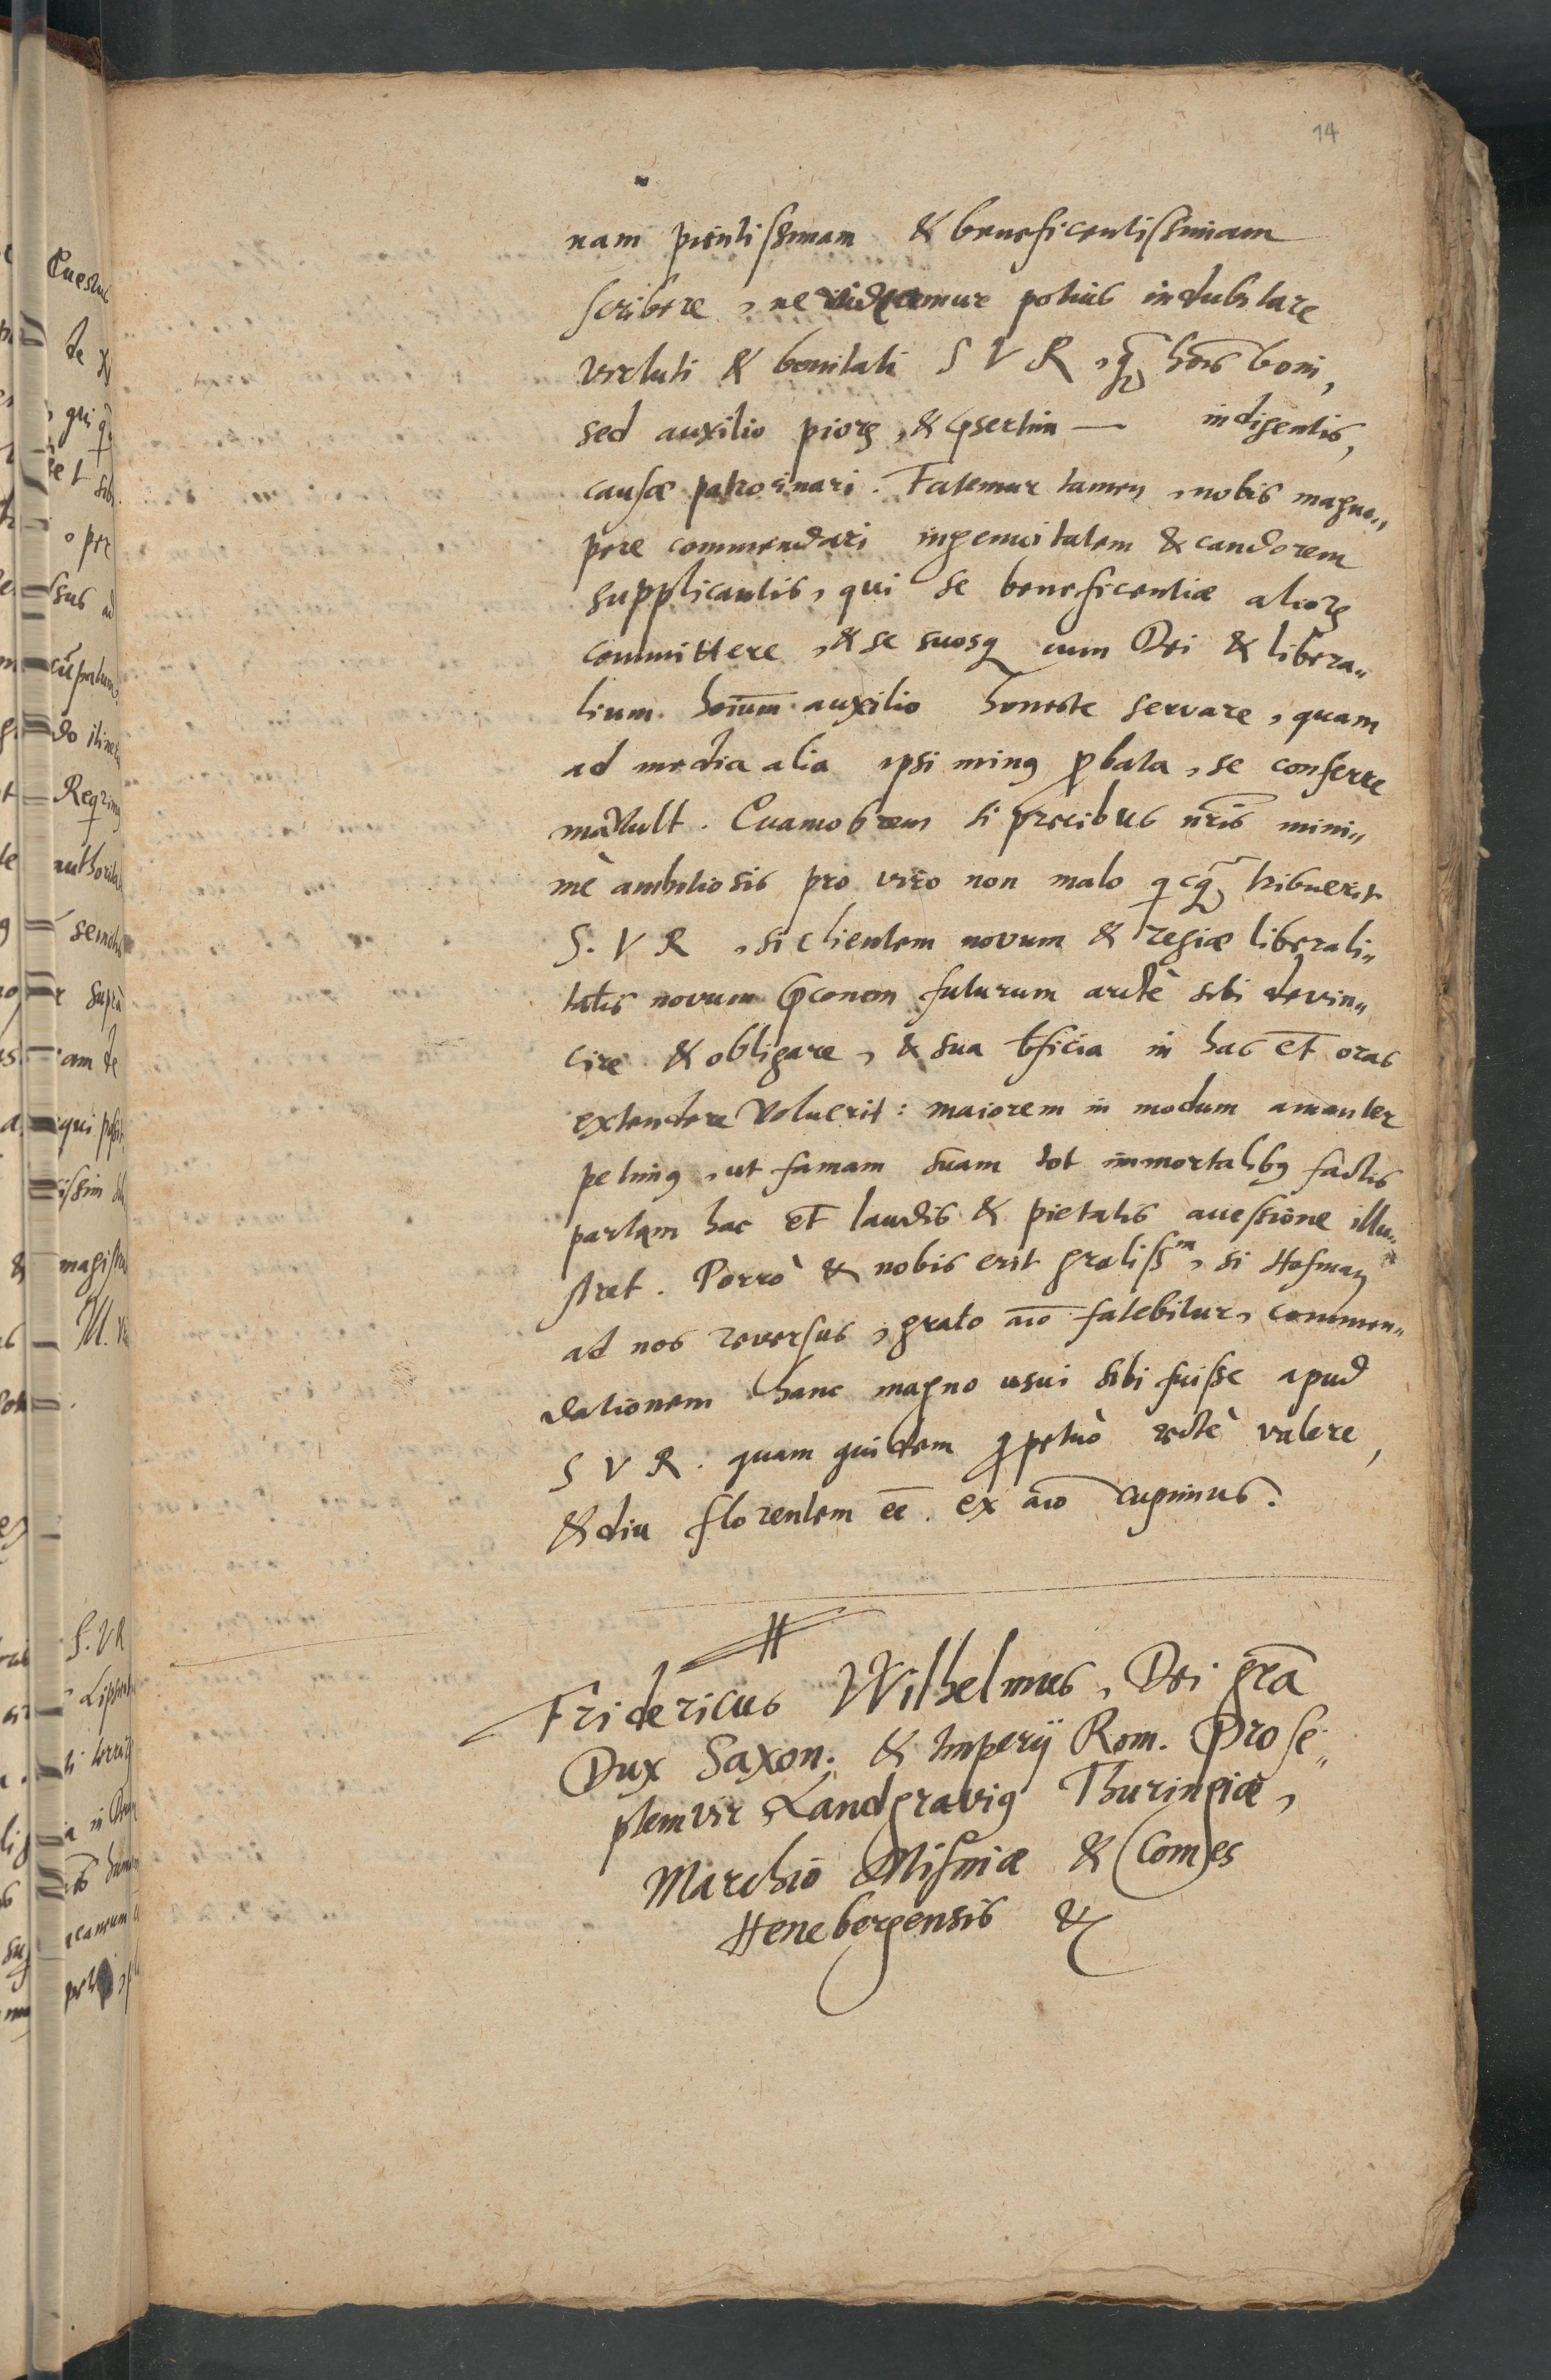 14
nam pientissimam & beneficentissimam
scribere, ne videamur potius indubitare
virtuti & bonitati S V R, q̃ hoĩs boni,
sed auxilio pioꝝ, & p̃sertim — indigentis,
causæ patrocinari. Fatemur tamen, nobis magno„
pere commendari ingenuitatem & candorem
supplicantis, qui se beneficentiæ alioꝝ
committere, & se suosq̃ cum Dei & libera„
lium hoĩum auxilio honeste servare, quam
ad media alia ipsi minꝰ ꝓbata, se conferre
mavult. Quamobrem si precibus nr̃is mini„
mè ambitiosis pro viro non malo qcq̃ tribuerit
S. V R, si clientem novum & regiæ liberali„
tatis novum p̃conem futurum arctè sibi devin„
cire & obligare, & sua b̃ficia in has et̃ oras
extendere voluerit: maiorem in modum amanter
petimꝰ, ut famam suam tot immortalibꝰ factis
partam hac et̃ laudis & pietatis accessione illu„
stret. Porrò & nobis erit gratissᵐ, si Hofman
ad nos reversus, grato aĩo fatebitur, commen„
dationem hanc magno usui sibi fuisse apud
S V R. quam quidem ꝑpetuò rectè valere,
& diu florentem eẽ ex aĩo cupimus.
Fridericus Wilhelmus, Dei grã
Dux Saxon. & Imperij Rom. Prose„
ptemvir Landgraviꝰ Thuringiæ,
Marchio Misniæ & Comes
Hennebergensis &c